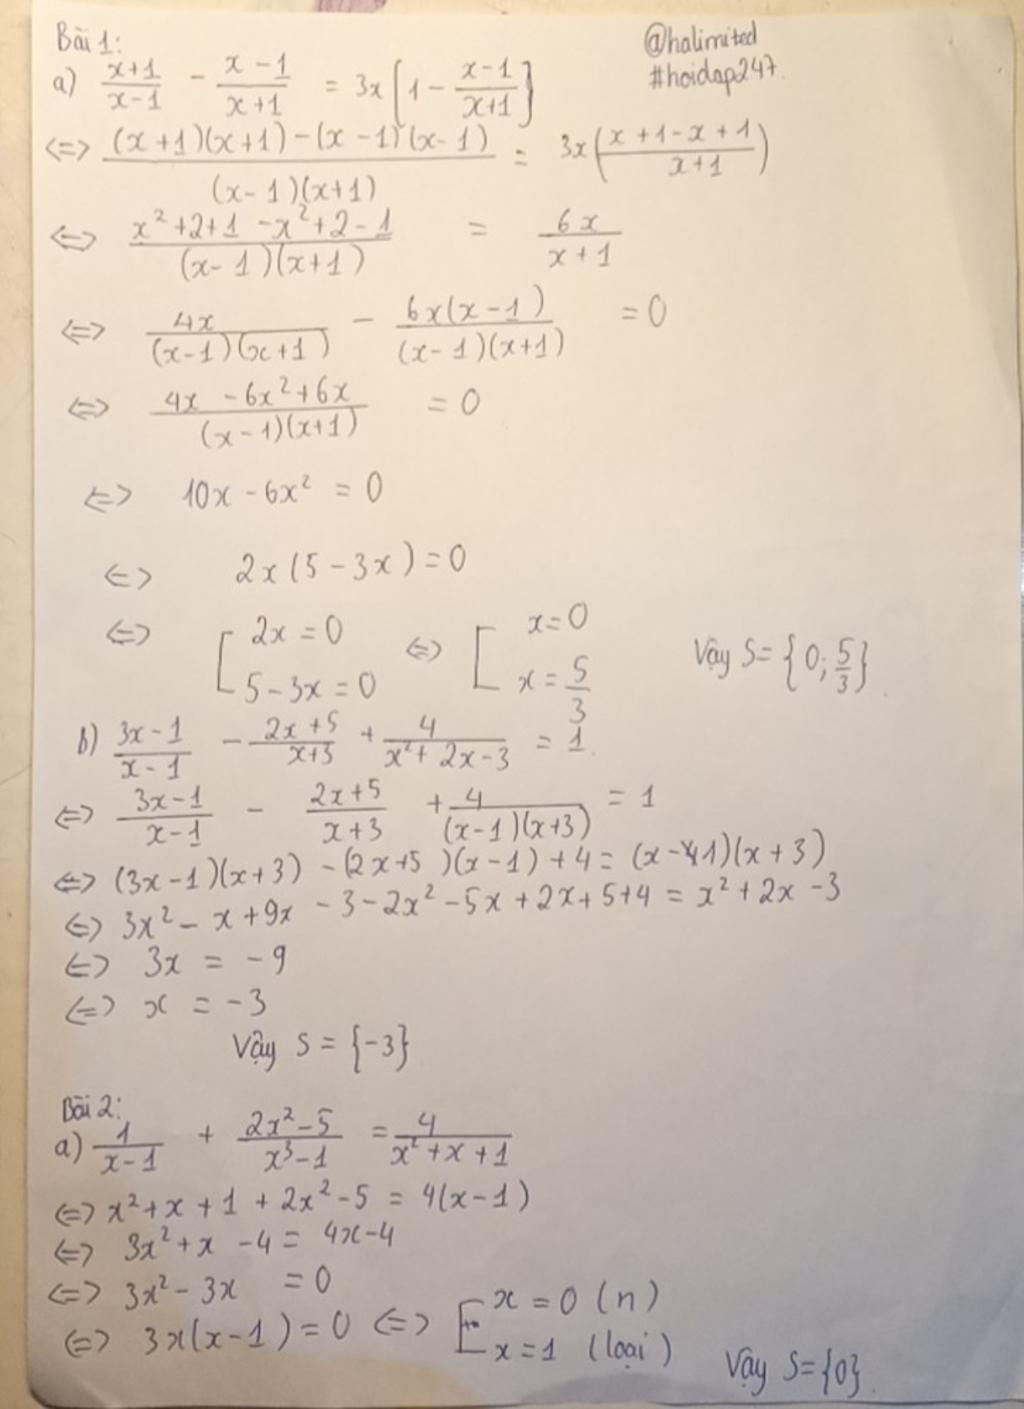 Bài 1:
@halimited
#hoidap247.
a) \frac{x+1}{x-1} - \frac{x-1}{x+1} = 3x[1 - \frac{x-1}{x+1}]
<=> \frac{(x+1)(x+1)-(x-1)(x-1)}{(x-1)(x+1)} = 3x(\frac{x+1-x+1}{x+1})
<=> \frac{x²+2+1-x²+2-1}{(x-1)(x+1)} = \frac{6x}{x+1}
<=> \frac{4x}{(x-1)(x+1)} - \frac{6x(x-1)}{(x-1)(x+1)} = 0
<=> \frac{4x-6x²+6x}{(x-1)(x+1)} = 0
<=> 10x - 6x² = 0
<=> 2x(5-3x) = 0
<=> [2x = 0; 5-3x = 0 <=> [x = 0; x = \frac{5}{3} Vậy S = {0; \frac{5}{3}}.
b) \frac{3x-1}{x-1} - \frac{2x+5}{x+3} + \frac{4}{x²+2x-3} = 1.
<=> \frac{3x-1}{x-1} - \frac{2x+5}{x+3} + \frac{4}{(x-1)(x+3)} = 1
<=> (3x-1)(x+3) - (2x+5)(x-1) + 4 = (x-1)(x+3)
<=> 3x² - x + 9x - 3 - 2x² - 5x + 2x + 5 + 4 = x² + 2x - 3
<=> 3x = -9
<=> x = -3
Vậy S = {-3}
Bài 2:
a) \frac{1}{x-1} + \frac{2x²-5}{x³-1} = \frac{4}{x²+x+1}
<=> x² + x + 1 + 2x² - 5 = 4(x-1)
<=> 3x² + x - 4 = 4x - 4
<=> 3x² - 3x = 0
<=> 3x(x-1) = 0 <=> [x = 0 (n); x = 1 (loại)
Vậy S = {0}.